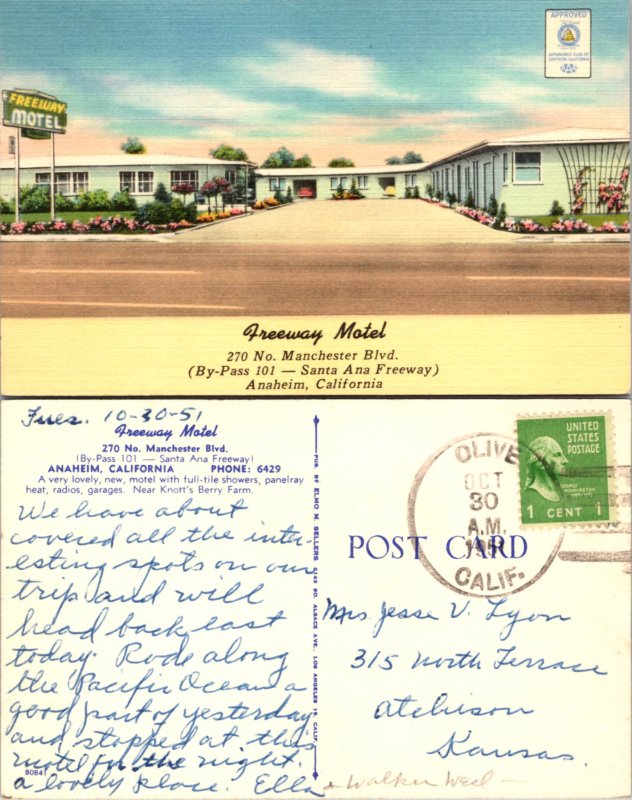 APPROVED
AUTOMOBILE CLUB OF
SOUTHERN CALIFORNIA
AAA
FREEWAY
MOTEL
Freeway Motel
270 No. Manchester Blvd.
(By-Pass 101 — Santa Ana Freeway)
Anaheim, California
Tues. 10-30-51
Freeway Motel
270 No. Manchester Blvd.
(By-Pass 101 — Santa Ana Freeway)
ANAHEIM, CALIFORNIA PHONE: 6429
A very lovely, new, motel with full-tile showers, panelray
heat, radios, garages. Near Knott's Berry Farm.
We have about
covered all the inter-
esting spots on our
trip and will
head back east
today. Rode along
the Pacific Ocean a
good part of yesterday
and stopped at this
motel for the night.
a lovely place. Ella
80841
PUB. BY ELMO M. SELLERS, 2149 SO. ALSACE AVE., LOS ANGELES 16, CALIF.
POST CARD
OLIVE
OCT
30
A.M.
1951
CALIF.
UNITED
STATES
POSTAGE
GEORGE
WASHINGTON
1 CENT 1
Mrs Jesse V. Lyon
315 North Terrace
Atchison
Kansas.
+ Walker Weed